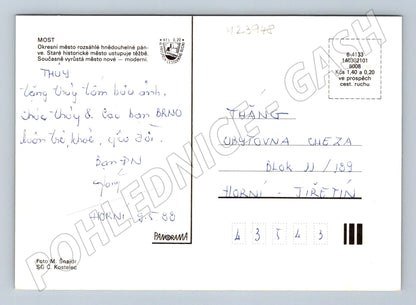 MOST
Okresní město rozsáhlé hnědouhelné pán-
ve. Staré historické město ustupuje těžbě.
Současně vyrůstá město nové — moderní.
THÚY
tặng thúy tấm bưu ảnh.
chúc thúy & các bạn BRNO
luôn trẻ, khoẻ, yêu đời.
Bạn ĐN
HORNÍ 5.5.88
Foto M. Šnajdr
SG Č. Kostelec
PANORAMA
423948
6-4133
146002101
6006
Kčs 1,40 a 0,20
ve prospěch
cest. ruchu
THĂNG
UBYTOVNA CHEZA
BLOK 11/189
HORNÍ - JIŘETÍN
4 3 5 4 3
POHLEDNICE - GASH